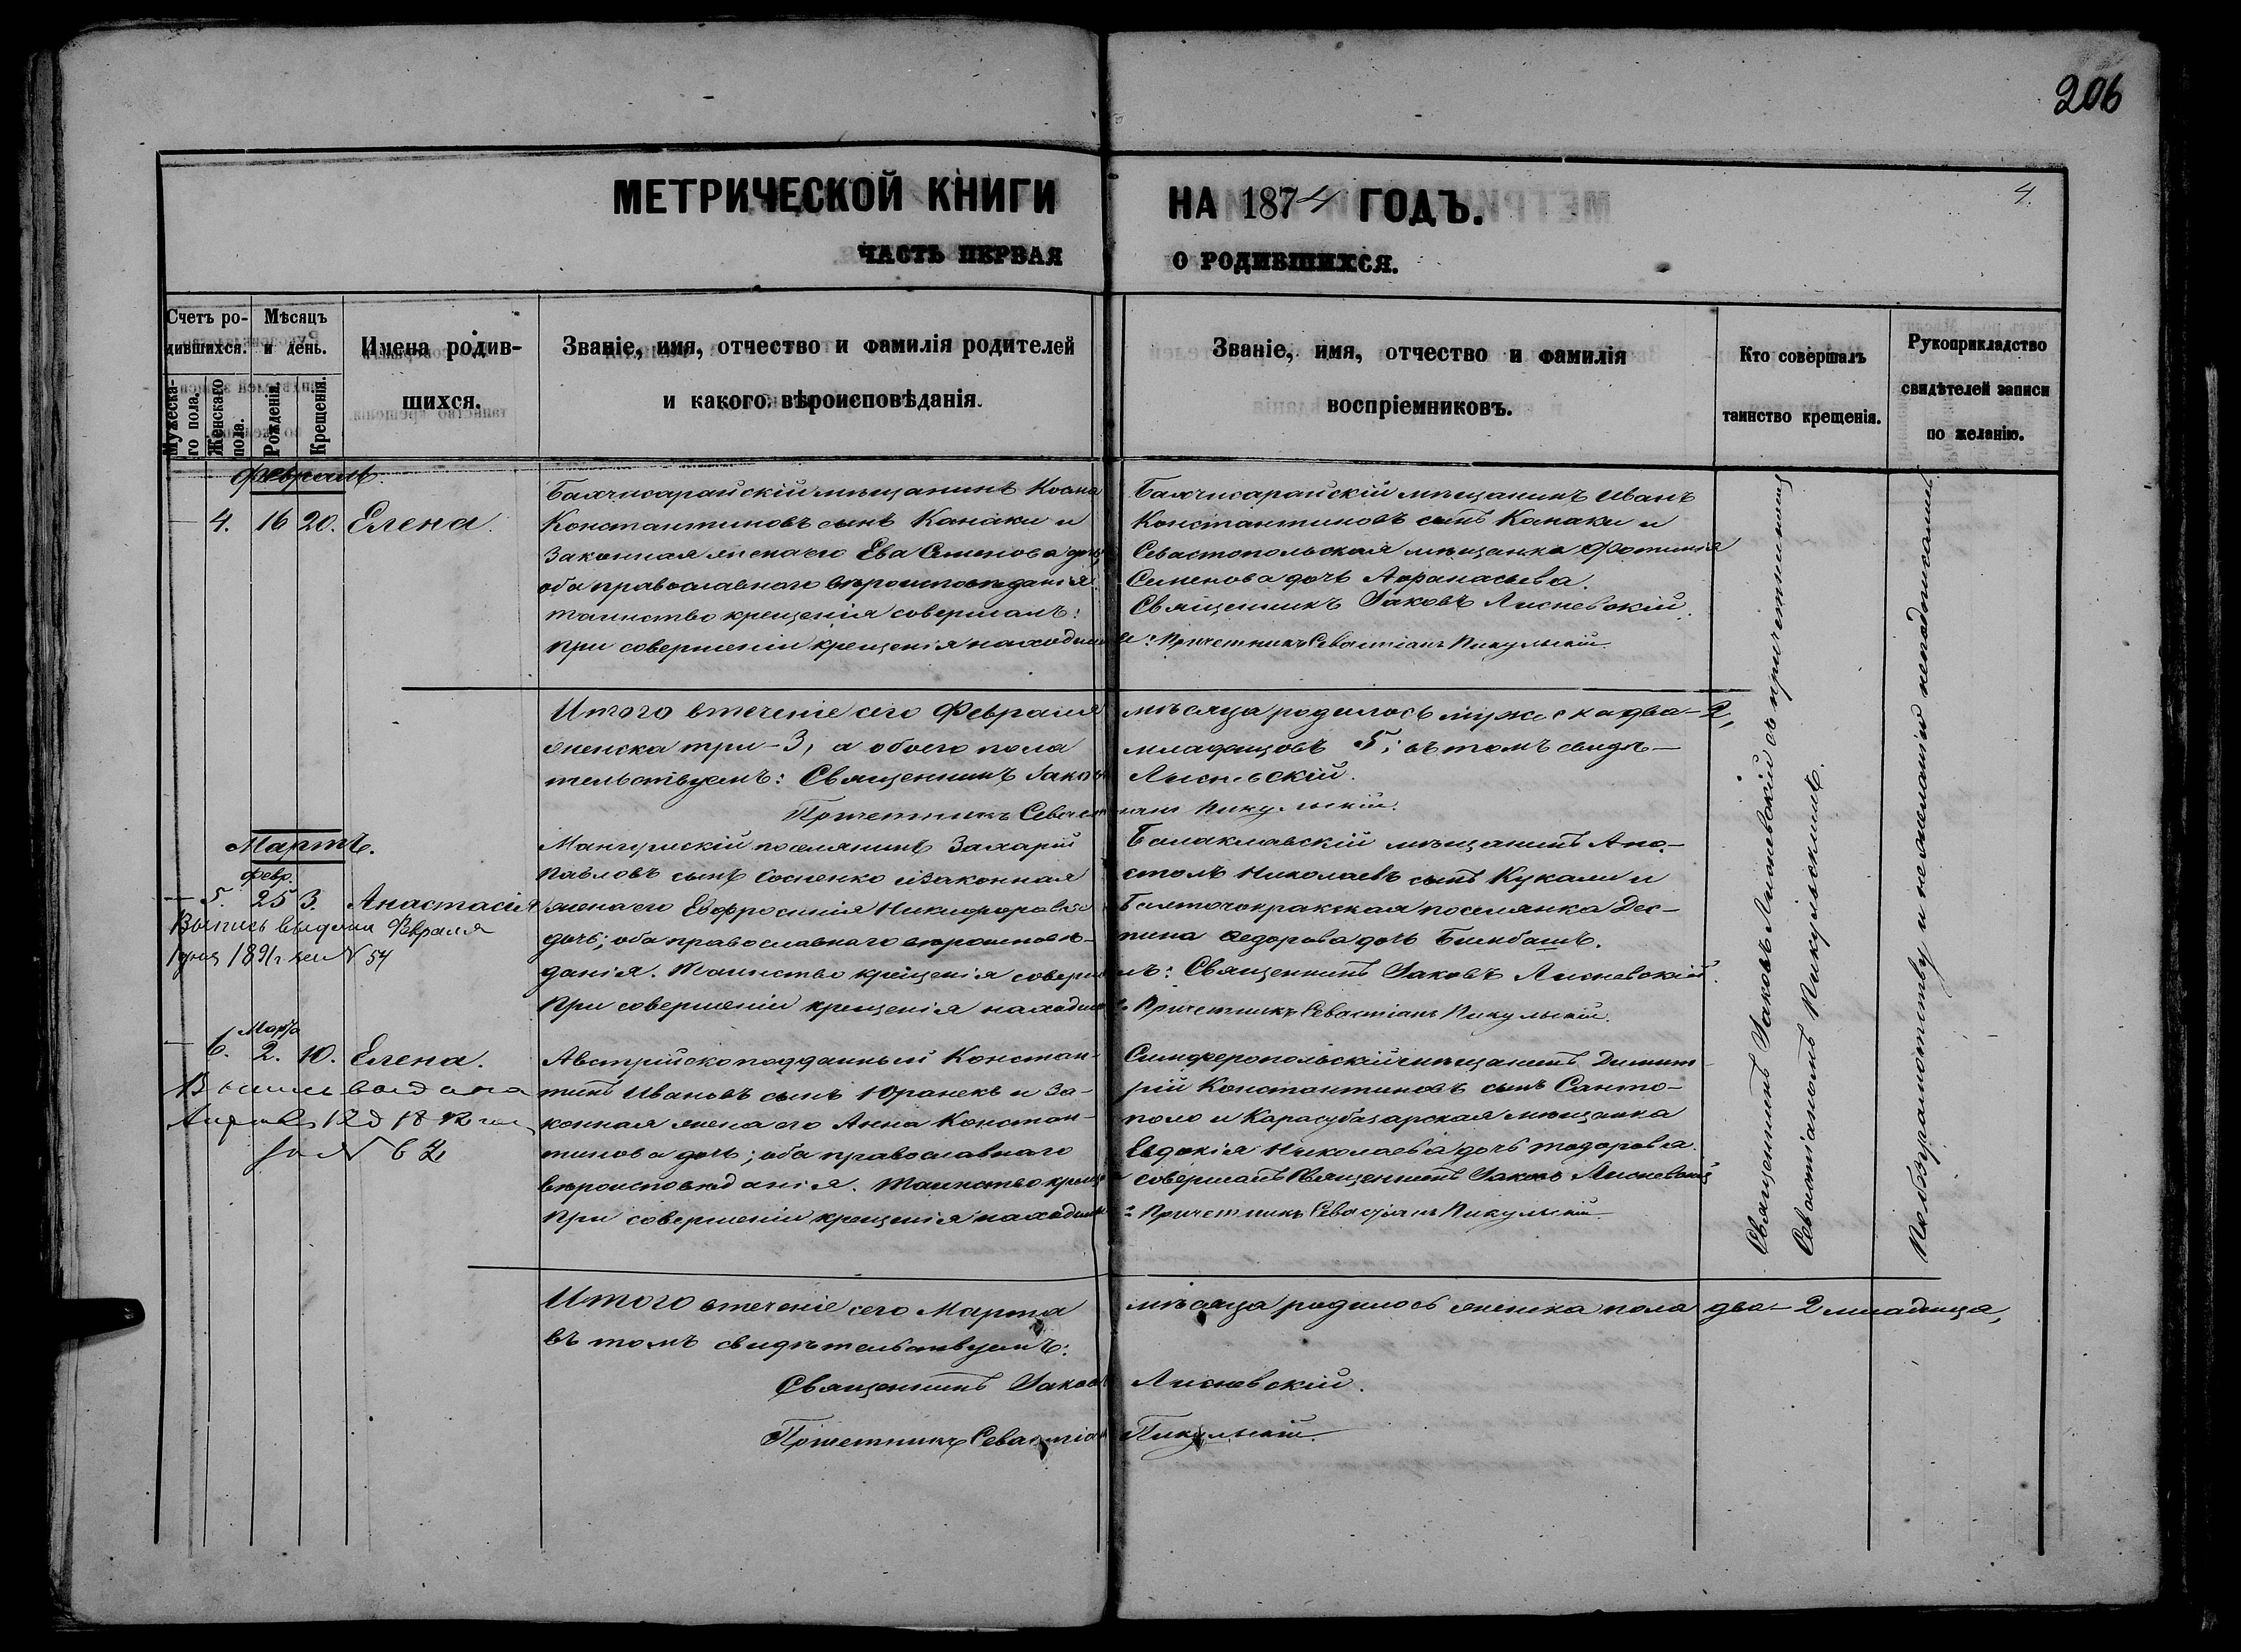 206
МЕТРИЧЕСКОЙ КНИГИ НА 1874 ГОДЪ.
4.
ЧАСТЬ ПЕРВАЯ О РОДИВШИХСЯ.
Счетъ ро-
дившихся.
Мужеска-
го пола.
Женскаго
пола.
Мѣсяцъ
и день.
Рожденія.
Крещенія.
Имена родив-
шихся.
Званіе, имя, отчество и фамилія родителей
и какого вѣроисповѣданія.
Званіе, имя, отчество и фамилія
воспріемниковъ.
Кто совершалъ
таинство крещенія.
Рукоприкладство
свидѣтелей записи
по желанію.
Февраль.
— 4. 16 20. Елена.
Бахчисарайскій мѣщанинъ Косма
Константиновъ сынъ Канаки и
законная жена его Ева Семенова дочь
оба православнаго вѣроисповѣданія.
Таинство крещенія совершалъ:
При совершеніи крещенія находил
Бахчисарайскій мѣщанинъ Иванъ
Константиновъ сынъ Канаки и
Севастопольская мѣщанка Фотинія
Семенова дочь Афанасьева.
Священникъ Іаковъ Лисневскій.
Причетникъ Севастіанъ Пикульскій.
Итого втеченіе сего Февраля мѣсяца родилось мужеска два – 2,
женска три – 3, а обоего пола младенцовъ 5; въ томъ свидѣ–
тельствуемъ: Священникъ Іаковъ Лисневскій.
Причетникъ Севастіанъ Пикульскій.
Мартъ.
Февр.
— 5. 25 3. Анастасія
Выпись выдана Февраля
1 дня 1891 г. за N 54
Мангушскій поселянинъ Захарій
Павловъ сынъ Сосненко и законная
жена его Евфросинія Никифорова
дочь; оба православнаго вѣроисповѣ–
данія. Таинство крещенія соверша
При совершеніи крещенія находил
Балаклавскій мѣщанинъ Апо–
столъ Николаевъ сынъ Кукали и
поселянка Дес–
пина Ѳедорова дочь Бинбашъ.
лъ: Священникъ Іаковъ Лисневскій.
Причетникъ Севастіанъ Пикульскій.
Марта
— 6. 2. 10. Елена.
Выпись выдана
за N 62
Австрійскоподданный Констан–
тинъ Ивановъ сынъ Юранекъ и за–
конная жена его Анна Констан–
тинова дочь; оба православнаго
вѣроисповѣданія. Таинство крещ
При совершеніи крещенія находил
Симферопольскій мѣщанинъ Димит–
рій Константиновъ сынъ Санто–
поло и Карасубазарская мѣщанка
Евдокія Николаева дочь Тодорова.
совершалъ Священникъ Іаковъ Лисневскій
Причетникъ Севастіанъ Пикульскій
Итого втеченіе сего Марта мѣсяца родилось женска пола два – 2 младенца,
въ томъ свидѣтельствуемъ:
Священникъ Іаковъ Лисневскій.
Причетникъ Севастіанъ Пикульскій.
Священникъ Іаковъ Лисневскій съ причетникомъ
Севастіаномъ Пикульскимъ.
По безграмотству и нежеланію неподписались.